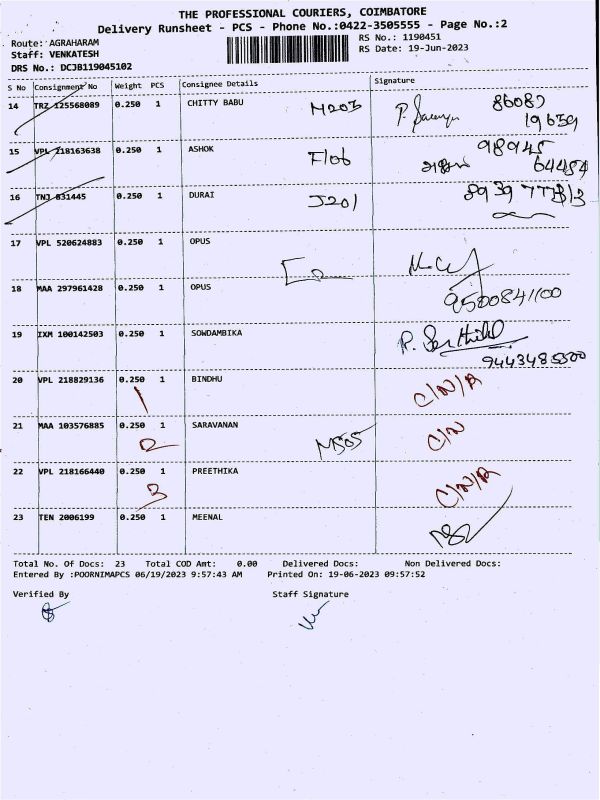 THE PROFESSIONAL COURIERS, COIMBATORE
Delivery Runsheet - PCS - Phone No.:0422-3505555 - Page No.:2
Route: AGRAHARAM
RS No.: 1190451
Staff: VENKATESH
RS Date: 19-Jun-2023
DRS No.: DCJB119045102
S No Consignment No Weight PCS Consignee Details Signature
14 TRZ 125568089 0.250 1 CHITTY BABU M203 86089
19659
15 VPL 218163638 0.250 1 ASHOK F106 98945
64484
16 TNJ 831445 0.250 1 DURAI J201 8939 777313
17 VPL 520624883 0.250 1 OPUS
18 MAA 297961428 0.250 1 OPUS 9500841100
19 IXM 100142503 0.250 1 SOWDAMBIKA P. Senthil
9443485500
20 VPL 218829136 0.250 1 BINDHU C/N/A
1
21 MAA 103576885 0.250 1 SARAVANAN M505 C/N
2
22 VPL 218166440 0.250 1 PREETHIKA C/N/A
3
23 TEN 2006199 0.250 1 MEENAL
Total No. Of Docs: 23 Total COD Amt: 0.00 Delivered Docs: Non Delivered Docs:
Entered By :POORNIMAPCS 06/19/2023 9:57:43 AM Printed On: 19-06-2023 09:57:52
Verified By Staff Signature